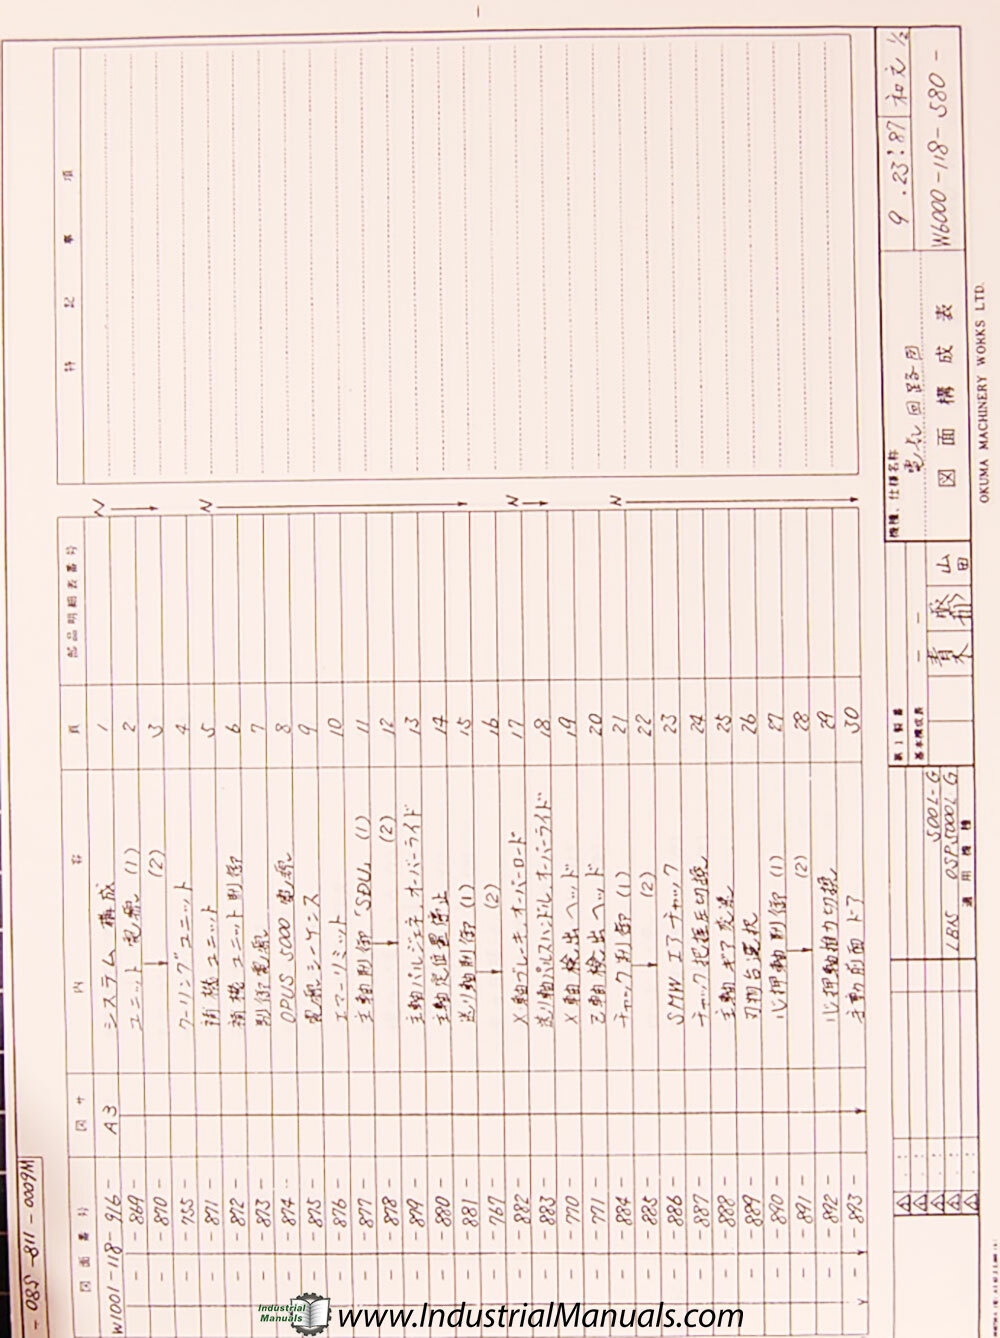 W6000-118-580-
図面番号 図サ 内容 頁 部品明細表番号 特記事項
W1001-118-916- A3 システム構成 1 N
-869- ユニット電源 (1) 2
-870- (2) 3
-755- クーリングユニット 4
-871- 補機ユニット 5 N
-872- 補機ユニット制御 6
-873- 制御電源 7
-874- OPUS 5000 電源 8
-875- 電源シーケンス 9
-876- エマーリミット 10
-877- 主軸制御「SDU」(1) 11
-878- (2) 12
-879- 主軸パルジェネ,オーバーライド 13
-880- 主軸定位置停止 14
-881- 送り軸制御 (1) 15
-767- (2) 16
-882- X軸ブレーキ,オーバーロード 17 N
-883- 送り軸パルスハンドル,オーバーライド 18
-770- X軸検出ヘッド 19
-771- Z軸検出ヘッド 20
-884- チャック制御 (1) 21 N
-885- (2) 22
-886- SMW エアチャック 23
-887- チャック把握圧切換 24
-888- 主軸ギア変速 25
-889- 刃物台選択 26
-890- 心押軸制御 (1) 27
-891- (2) 28
-892- 心押軸推力切換 29
-893- 手動前面ドア 30
LB15 OSP5000L-G
500L-G
適用機種
第1製番
基本構成表
青木
山田
機種、仕様名称
電気回路図
9.23.'87
1/2
図面構成表
W6000-118-580-
OKUMA MACHINERY WORKS LTD.
Industrial Manuals
www.IndustrialManuals.com